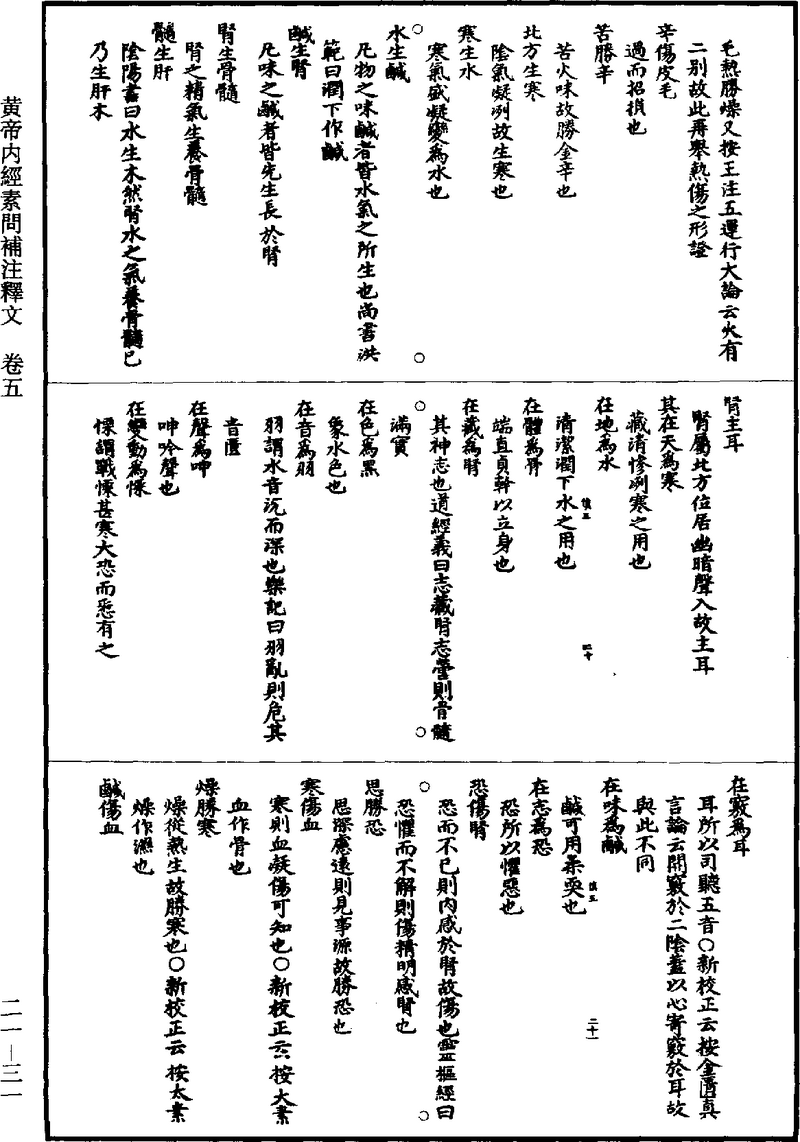 毛熱勝燥又按王注五運行大論云火有
二別故此再舉熱傷之形證
辛傷皮毛
過而招損也
苦勝辛
苦火味故勝金辛也
北方生寒
陰氣凝冽故生寒也
寒生水
寒氣盛凝變為水也
水生鹹
凡物之味鹹者皆水氣之所生也尚書洪
範曰潤下作鹹
鹹生腎
凡味之鹹者皆先生長於腎
腎生骨髓
腎之精氣生養骨髓
髓生肝
陰陽書曰水生木然腎水之氣養骨髓已
乃生肝木
腎主耳
腎屬北方位居幽暗聲入故主耳
其在天為寒
藏清慘冽寒之用也
在地為水
清潔潤下水之用也
慎五
二十
在體為骨
端直貞幹以立身也
在藏為腎
其神志也道經義曰志藏腎志營則骨髓
滿實
在色為黑
象水色也
在音為羽
羽謂水音沉而深也樂記曰羽亂則危其
音匱
在聲為呻
呻吟聲也
在變動為慄
慄謂戰慄甚寒大恐而悉有之
在竅為耳
耳所以司聽五音○新校正云按金匱真
言論云開竅於二陰蓋以心寄竅於耳故
與此不同
在味為鹹
鹹可用柔耎也
慎五
二十一
在志為恐
恐所以懼惡也
恐傷腎
恐而不已則內感於腎故傷也靈樞經曰
恐懼而不解則傷精明感腎也
思勝恐
思深慮遠則見事源故勝恐也
寒傷血
寒則血凝傷可知也○新校正云按大素
血作骨也
燥勝寒
燥從熱生故勝寒也○新校正云按太素
燥作濕也
鹹傷血
黃帝內經素問補注釋文　卷五
二一—三一